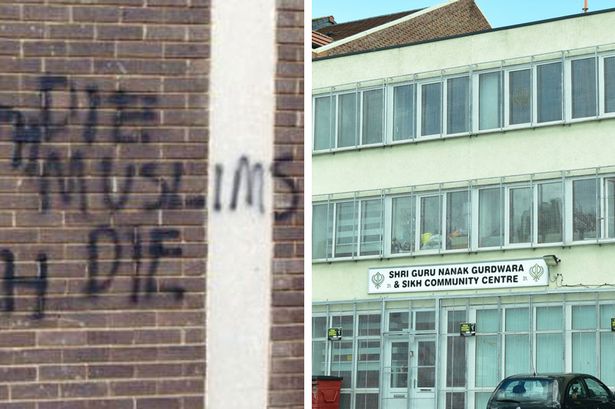 DIE
MUSLIMS
DIE
H
SHRI GURU NANAK GURDWARA
& SIKH COMMUNITY CENTRE